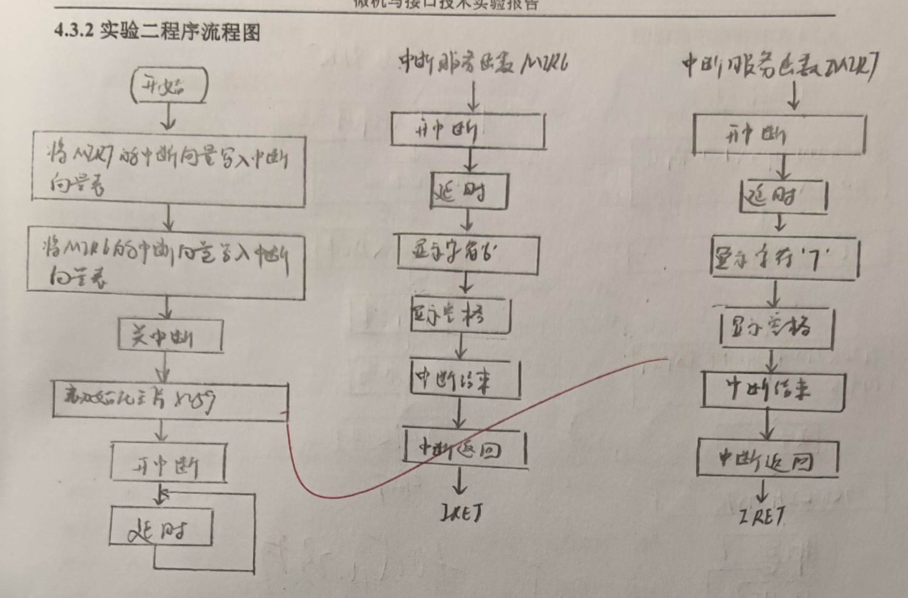 微机与接口技术实验报告
4.3.2 实验二程序流程图
开始
将MIR7的中断向量写入中断
向量表
将MIR6的中断向量写入中断
向量表
关中断
初始化主片8259
开中断
延时
中断服务函数MIR6
开中断
延时
显示字符'6'
显示空格
中断结束
中断返回
IRET
中断服务函数MIR7
开中断
延时
显示字符'7'
显示空格
中断结束
中断返回
IRET